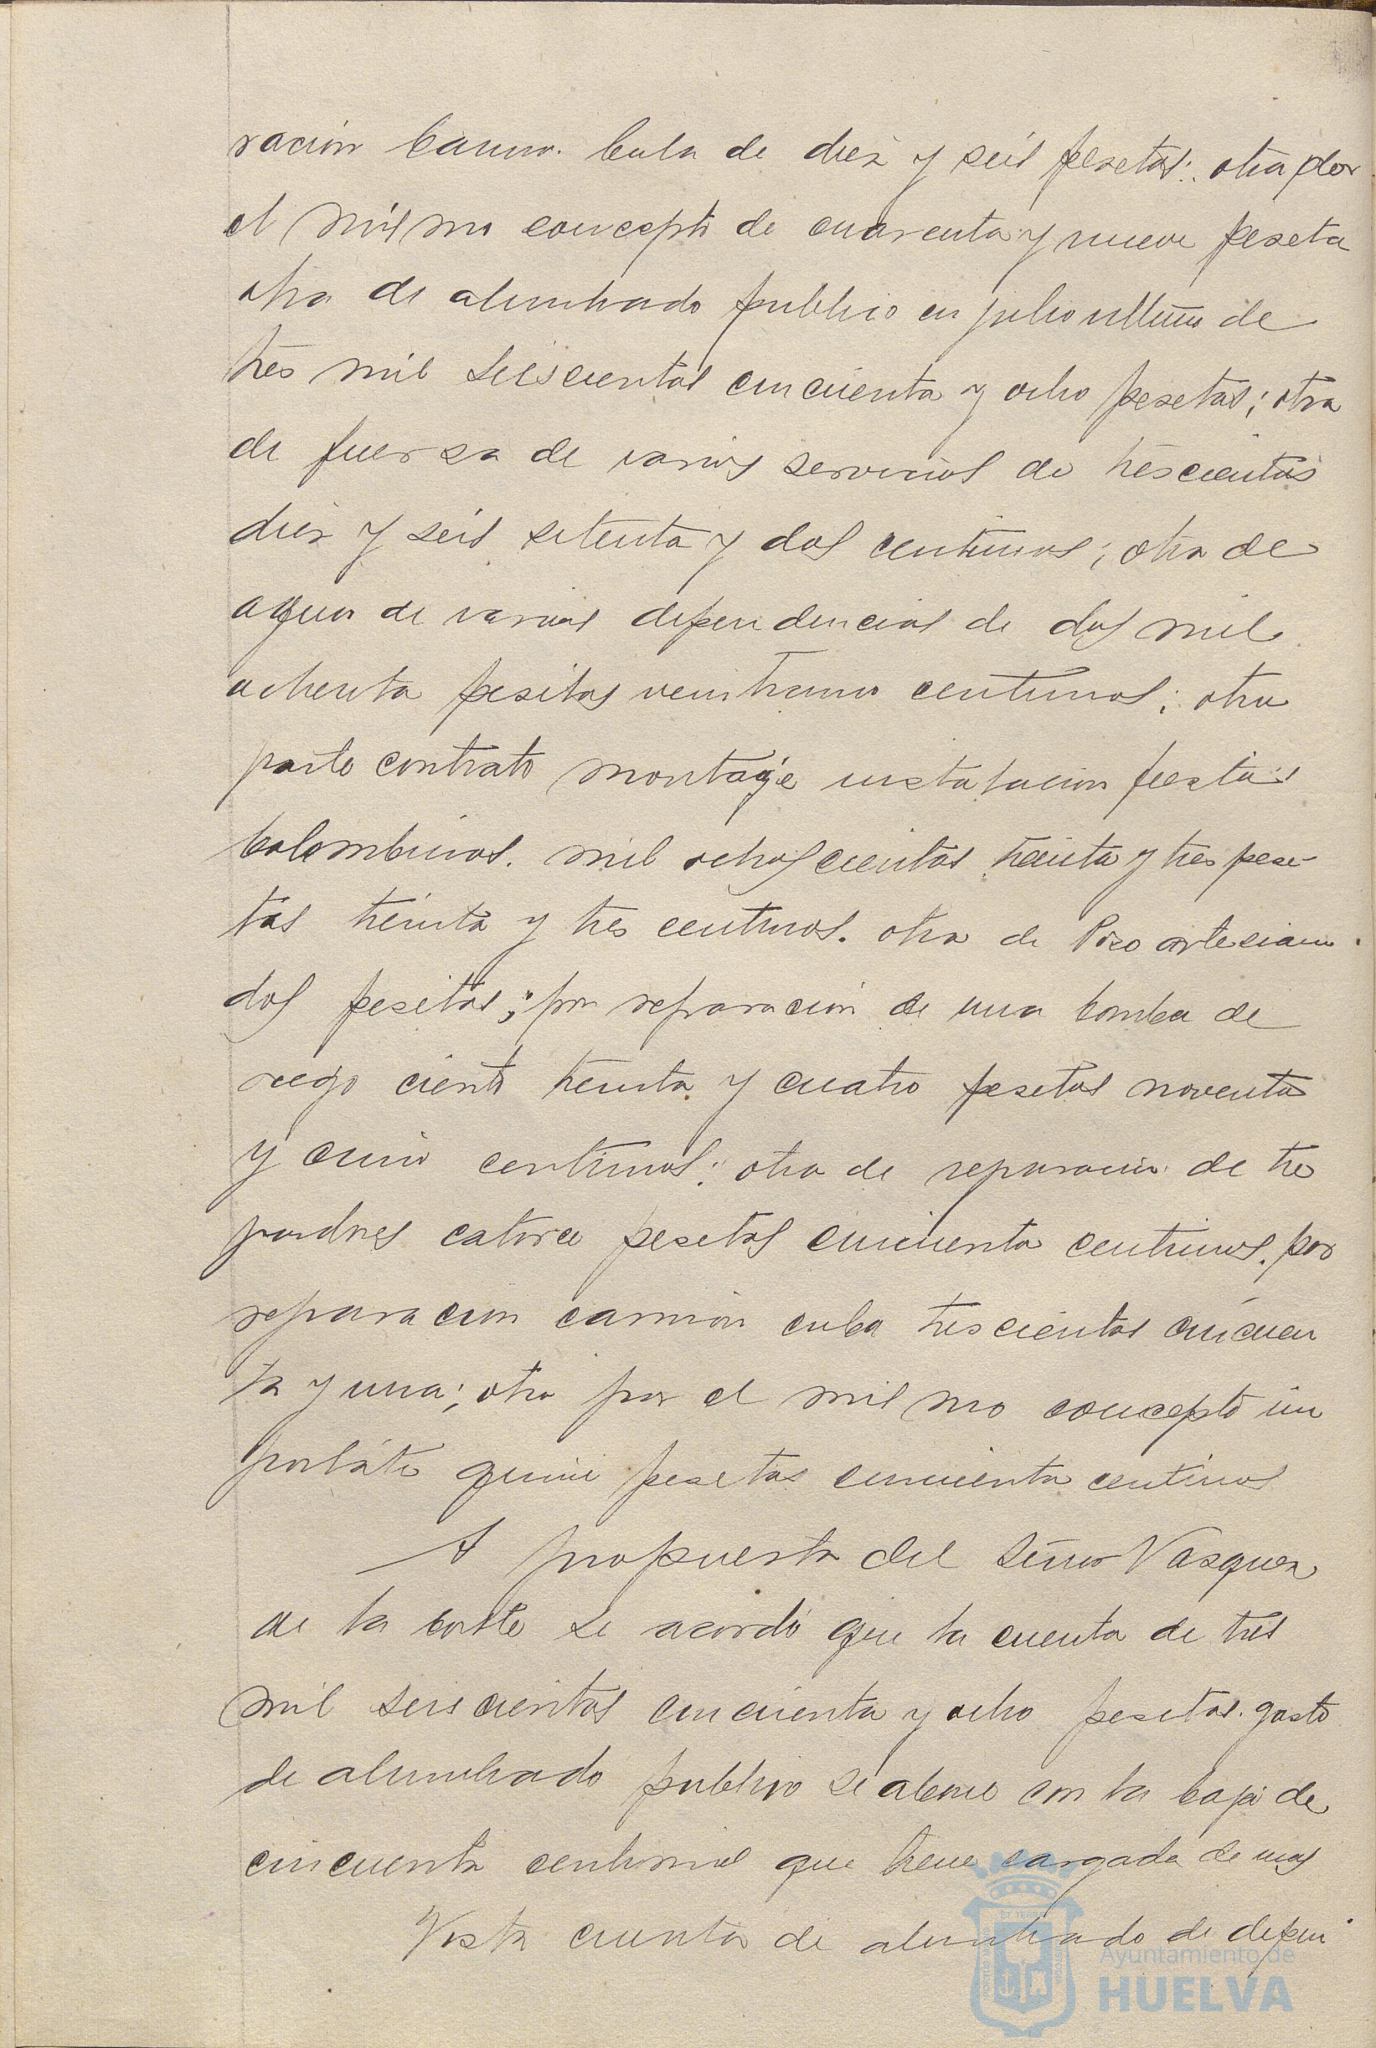 ración camn. Cuba de diez y seis pesetas; otra por
el mismo concepto de cuarenta y nueve peseta
otra de alumbrado publico en julio ultimo de
tres mil seiscientas cincuenta y ocho pesetas; otra
de fuerza de varios servicios de trescientas
diez y seis setenta y dos centimos; otra de
agua de varias dependencias de dos mil
ochenta pesetas veinticuatro centimos; otra
parte contrato montaje instalacion fiestas
Colombinas. mil ochoscientas treinta y tres pese-
tas treinta y tres centimos. otra de Pozo artesiano
dos pesetas; por reparación de una bomba de
riego ciento treinta y cuatro pesetas noventa
y cinco centimos; otra de reparacion de tres
catorce pesetas cincuenta centimos. por
reparacion camión cuba trescientas cincuen
ta y una; otra por el mismo concepto im
portáte quince pesetas cincuenta centimos
A propuesta del Señor Vazquez
de la Corte se acordó que la cuenta de tres
mil seiscientas cincuenta y ocho pesetas. gasto
de alumbrado publico se abone con la baja de
cincuenta centimos que tiene cargada de mas
Vista cuenta de alumbrado de depen
Ayuntamiento de
HUELVA